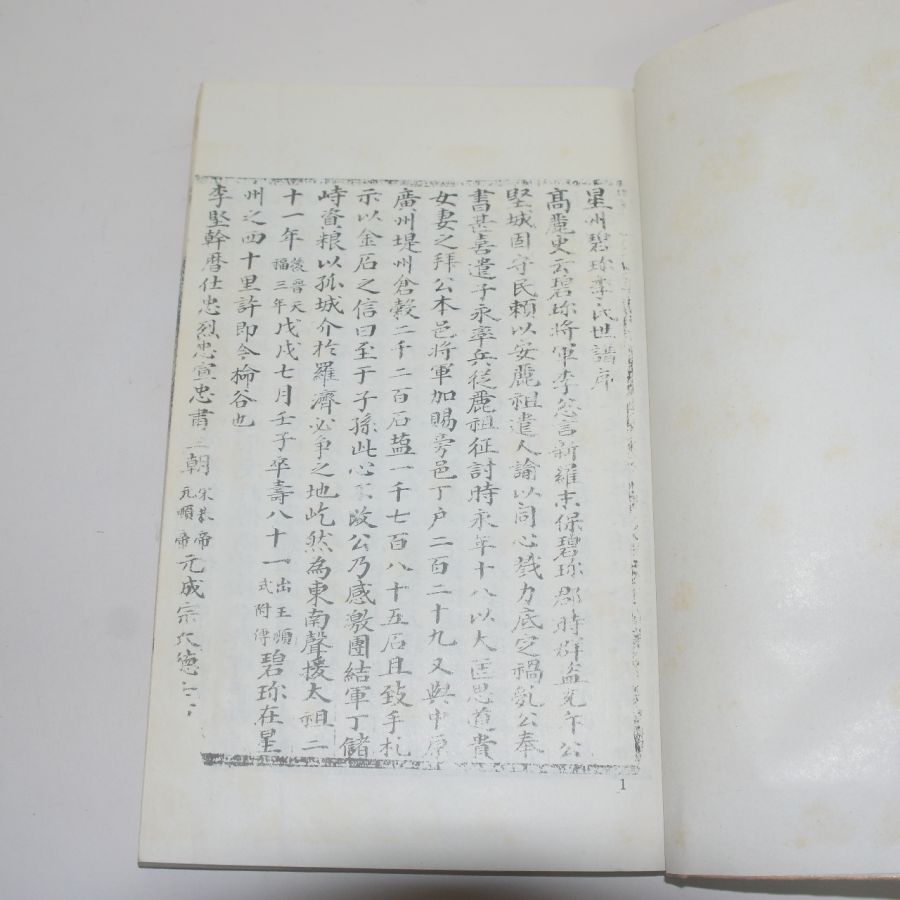 星州碧珎李氏世譜序
高麗史云碧珎將軍李怱言新羅末保碧珎郡時群盜充斥公
堅城固守民賴以安麗祖遣人諭以同心戮力底定禍亂公奉
書甚喜遣子永率兵從麗祖征討時永年十八以大匡思道貴
女妻之拜公本邑將軍加賜旁邑丁户二百二十九又與中原
廣州堤州倉糓二千二百石塩一千七百八十五石且致手札
示以金石之信曰至于子孫此心不改公乃感激團結軍丁儲
峙資粮以孤城介於羅濟必爭之地屹然為東南聲援太祖二
十一年後晉天福三年戊戌七月壬子卒壽八十一出王順式附傳碧珎在星
州之西十里許即今楡谷也
李堅幹曆仕忠烈忠宣忠肅三朝宋恭帝元順帝元成宗大德
1